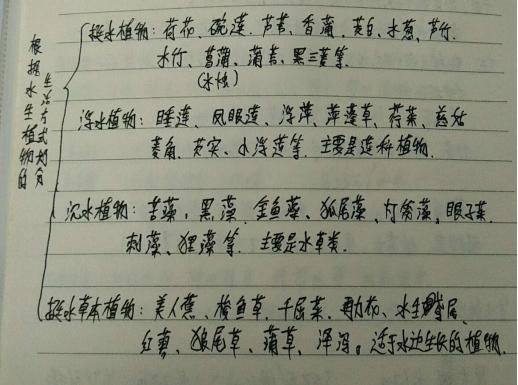 根据水生植物的
生活方式划分
挺水植物：荷花、碗莲、芦苇、香蒲、茭白、水葱、芦竹、
水竹、菖蒲、蒲苇、黑三菱等
(水烛)
浮水植物：睡莲、凤眼莲、浮萍、萍蓬草、荇菜、慈姑
菱角、芡实、水浮莲等 主要是莲科植物.
沉水植物：苦藻、黑藻、金鱼藻、狐尾藻、竹叶藻、眼子菜
刺藻、狸藻等 主要是水草类.
挺水草本植物：美人蕉、梭鱼草、千屈菜、再力花、水生鸢尾
红蓼、狼尾草、蒲草、泽泻。适于水边生长的植物.